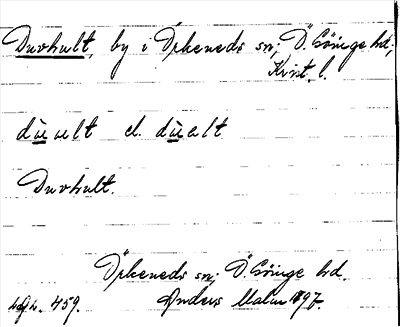 Duvhult, by i Örkeneds sn; Ö. Göinge hd;
Krist. l.
düult el. düelt
Duvhult.
Örkeneds sn; Ö. Göinge hd.
459. Anders Malm 1897.